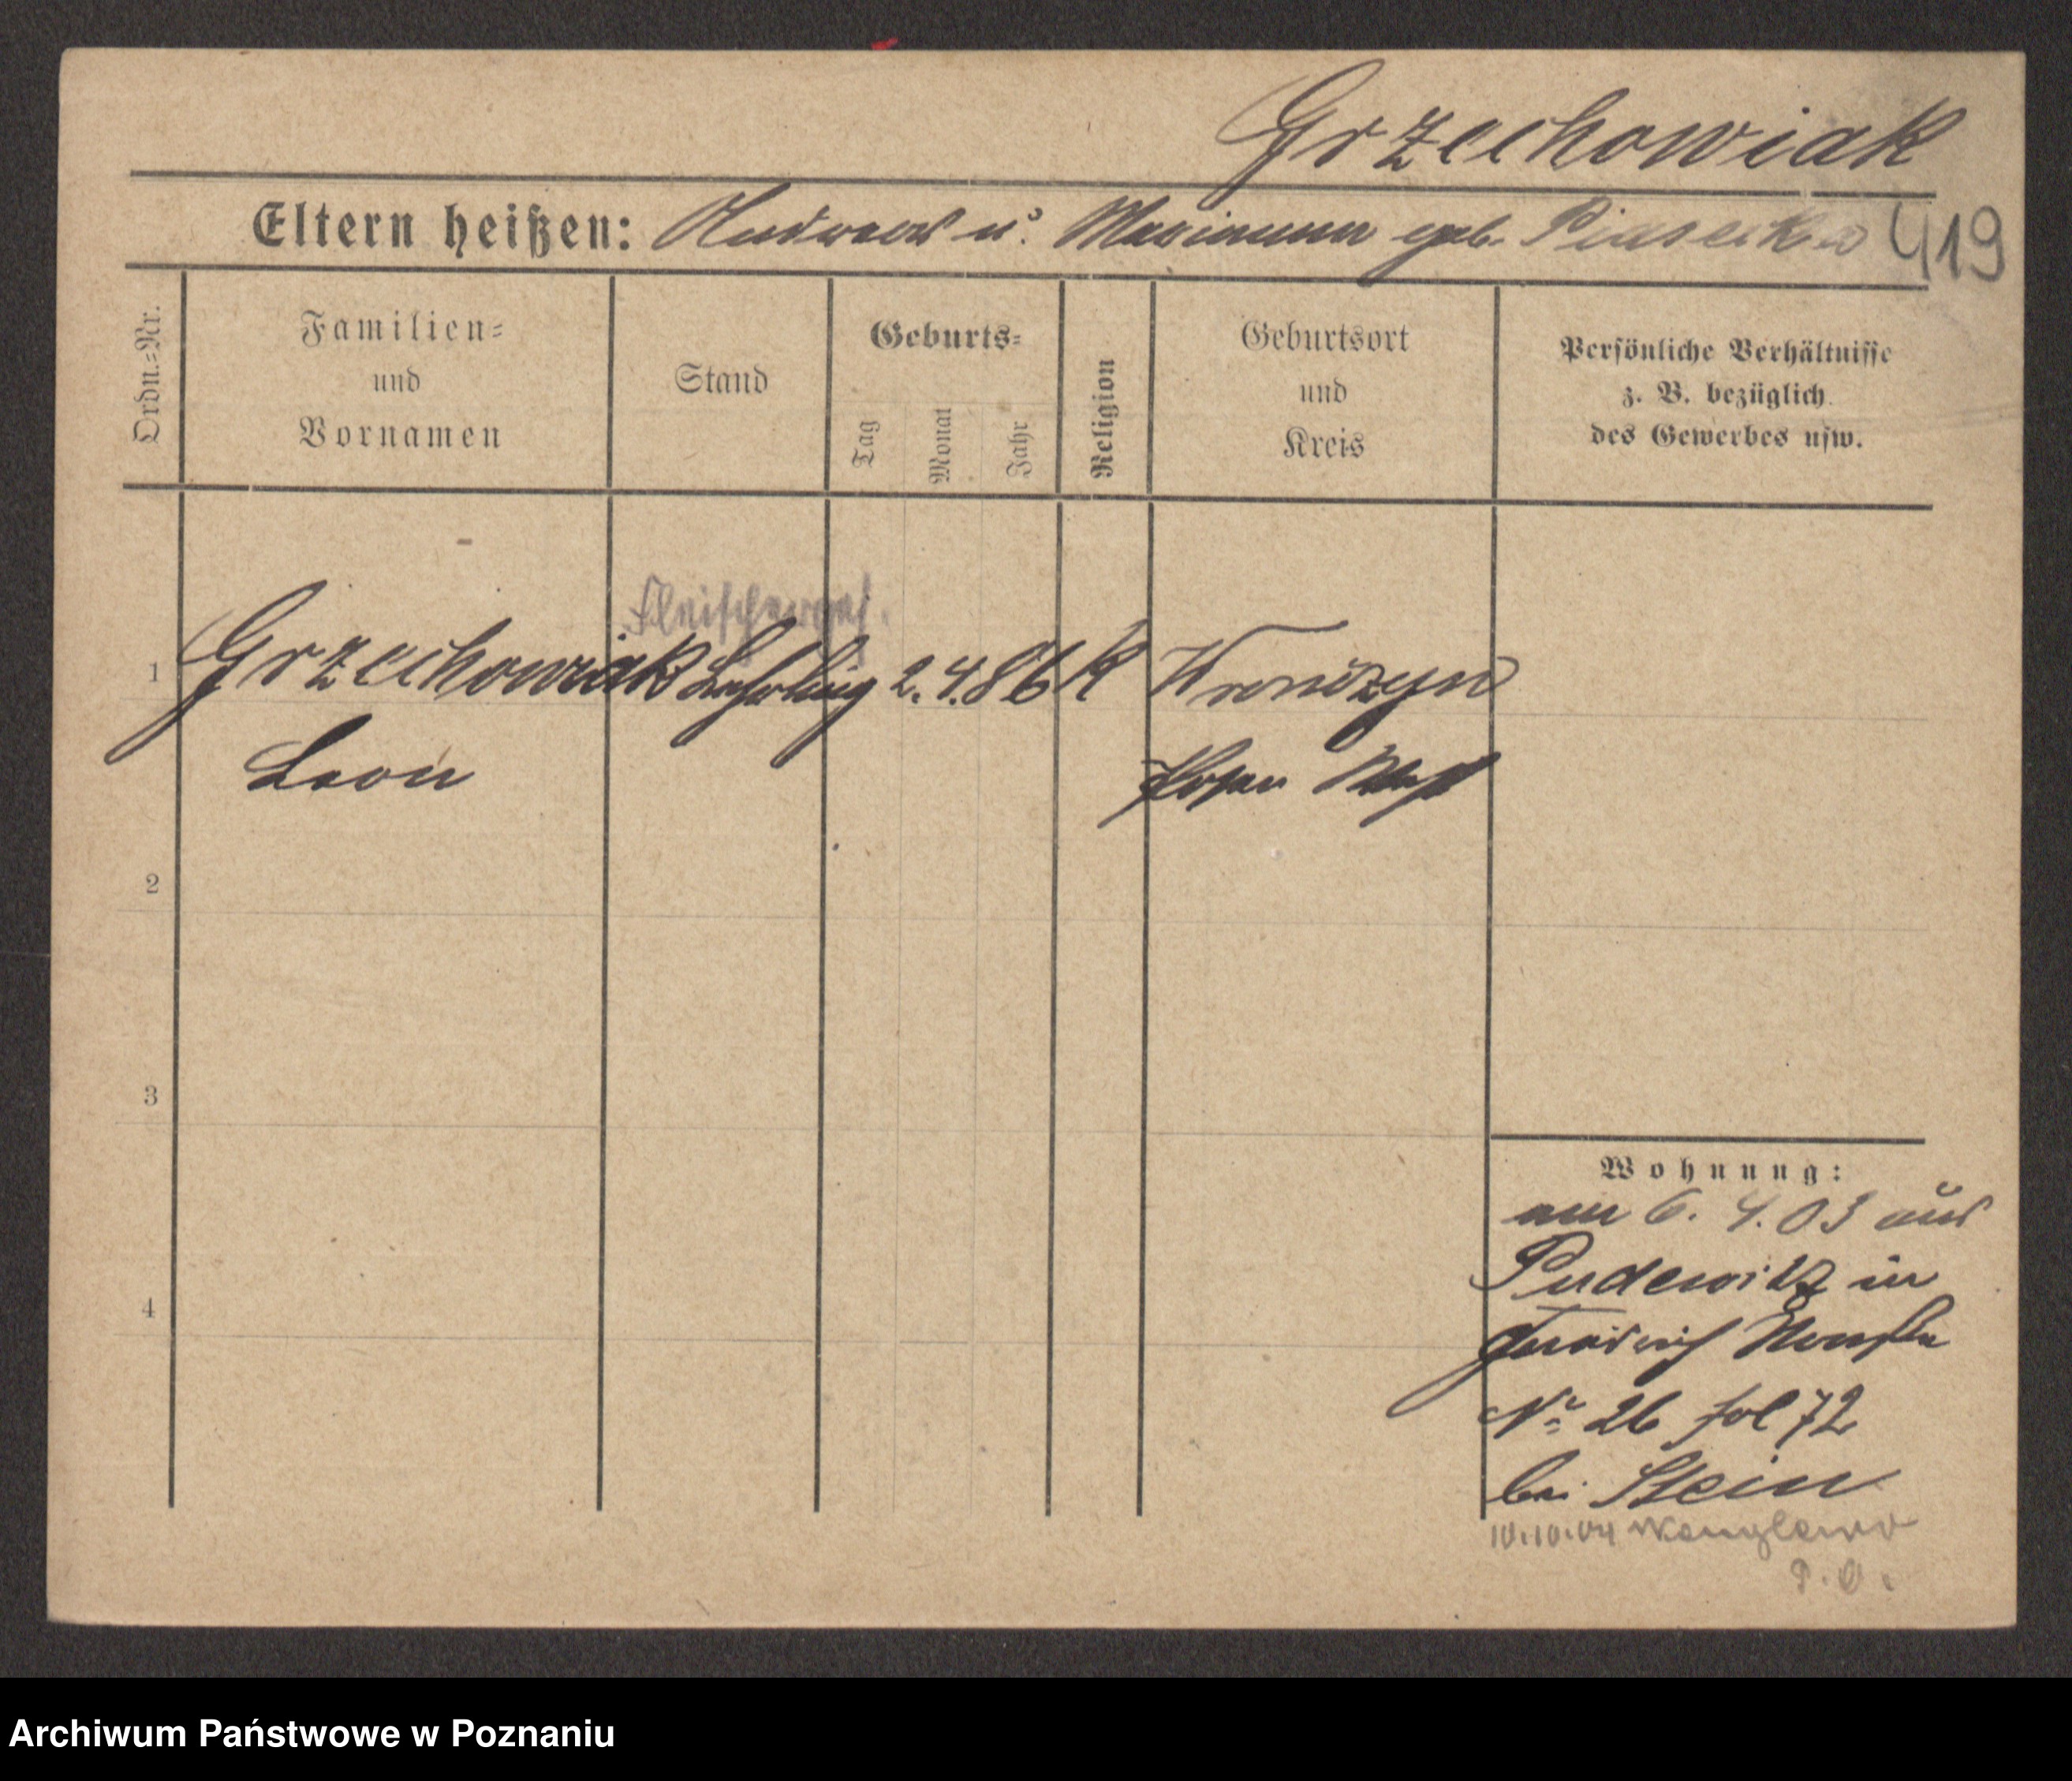 Grzechowiak
Eltern heißen: Andreas u. Marianna geb. Piasecka 419
Ordn.-Nr.
Familien-
und
Vornamen
Stand
Geburts-
Tag
Monat
Jahr
Religion
Geburtsort
und
Kreis
Persönliche Verhältnisse
z. B. bezüglich
des Gewerbes usw.
Fleischerges.
1 Grzechowiak Lehrling 2. 4. 86 K Wronczyn
Leon Posen West
2
3
4
Wohnung:
am 6. 4. 03 aus
Pudewitz in
No 26 fol 72
bei Stein
10.10.04
P. O.
Archiwum Państwowe w Poznaniu